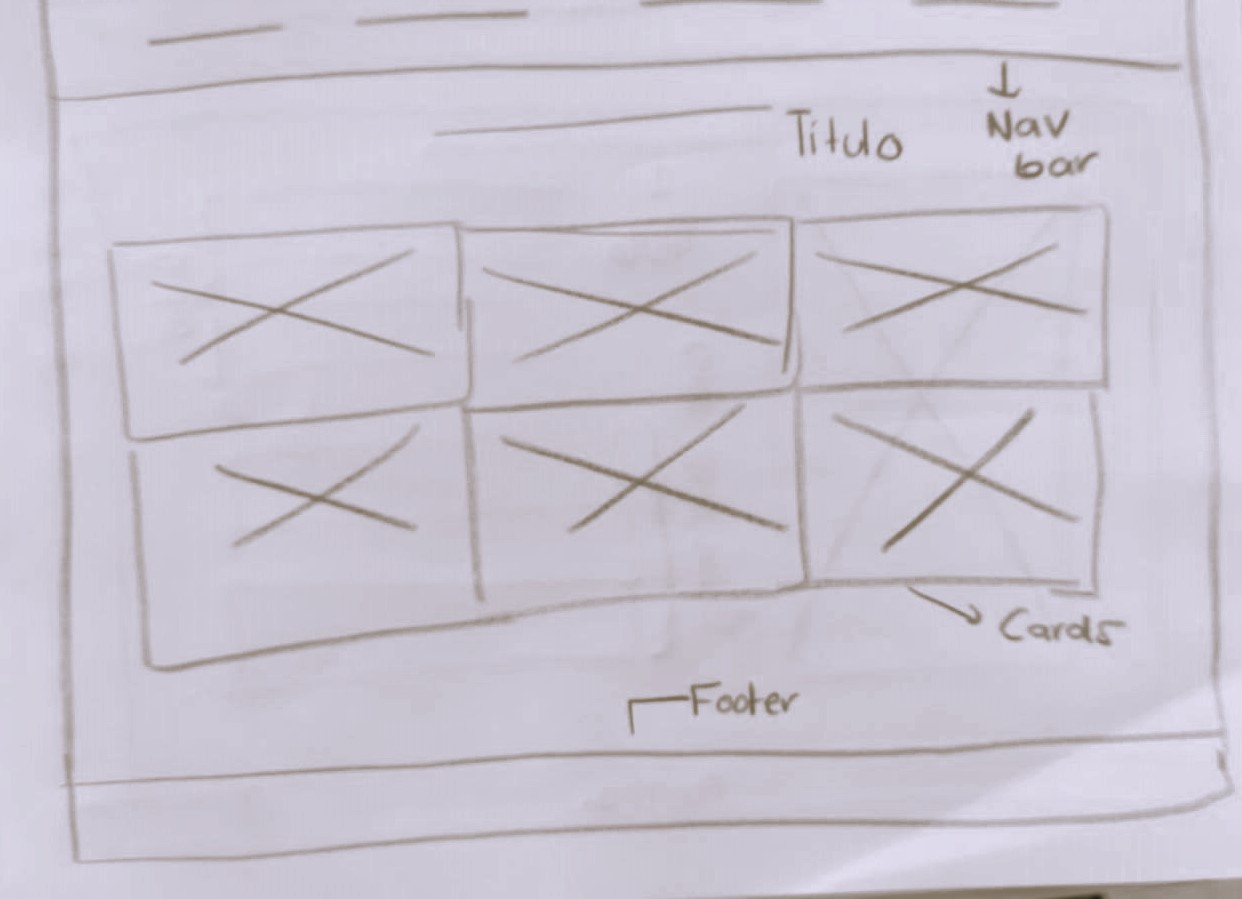 Titulo
Nav
bar
Cards
Footer